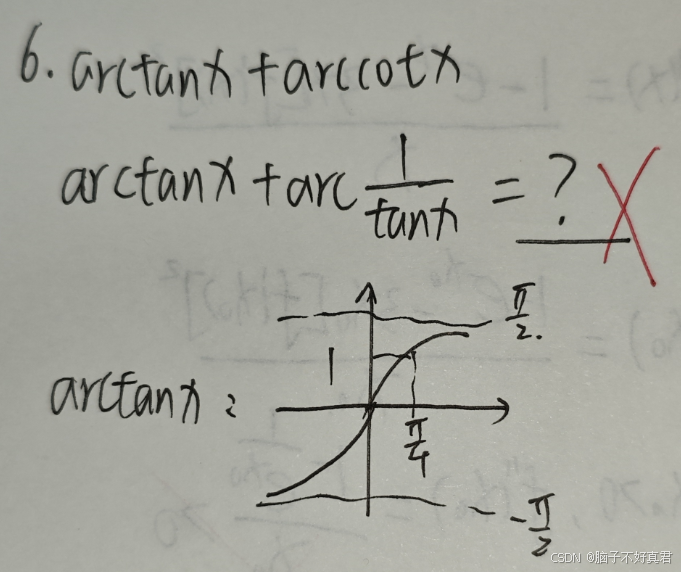 6. arctanx + arccotx
arctanx + arc 1/tanx = ?
π/2.
1
arctanx:
π/4
-π/2
CSDN @脑子不好真君